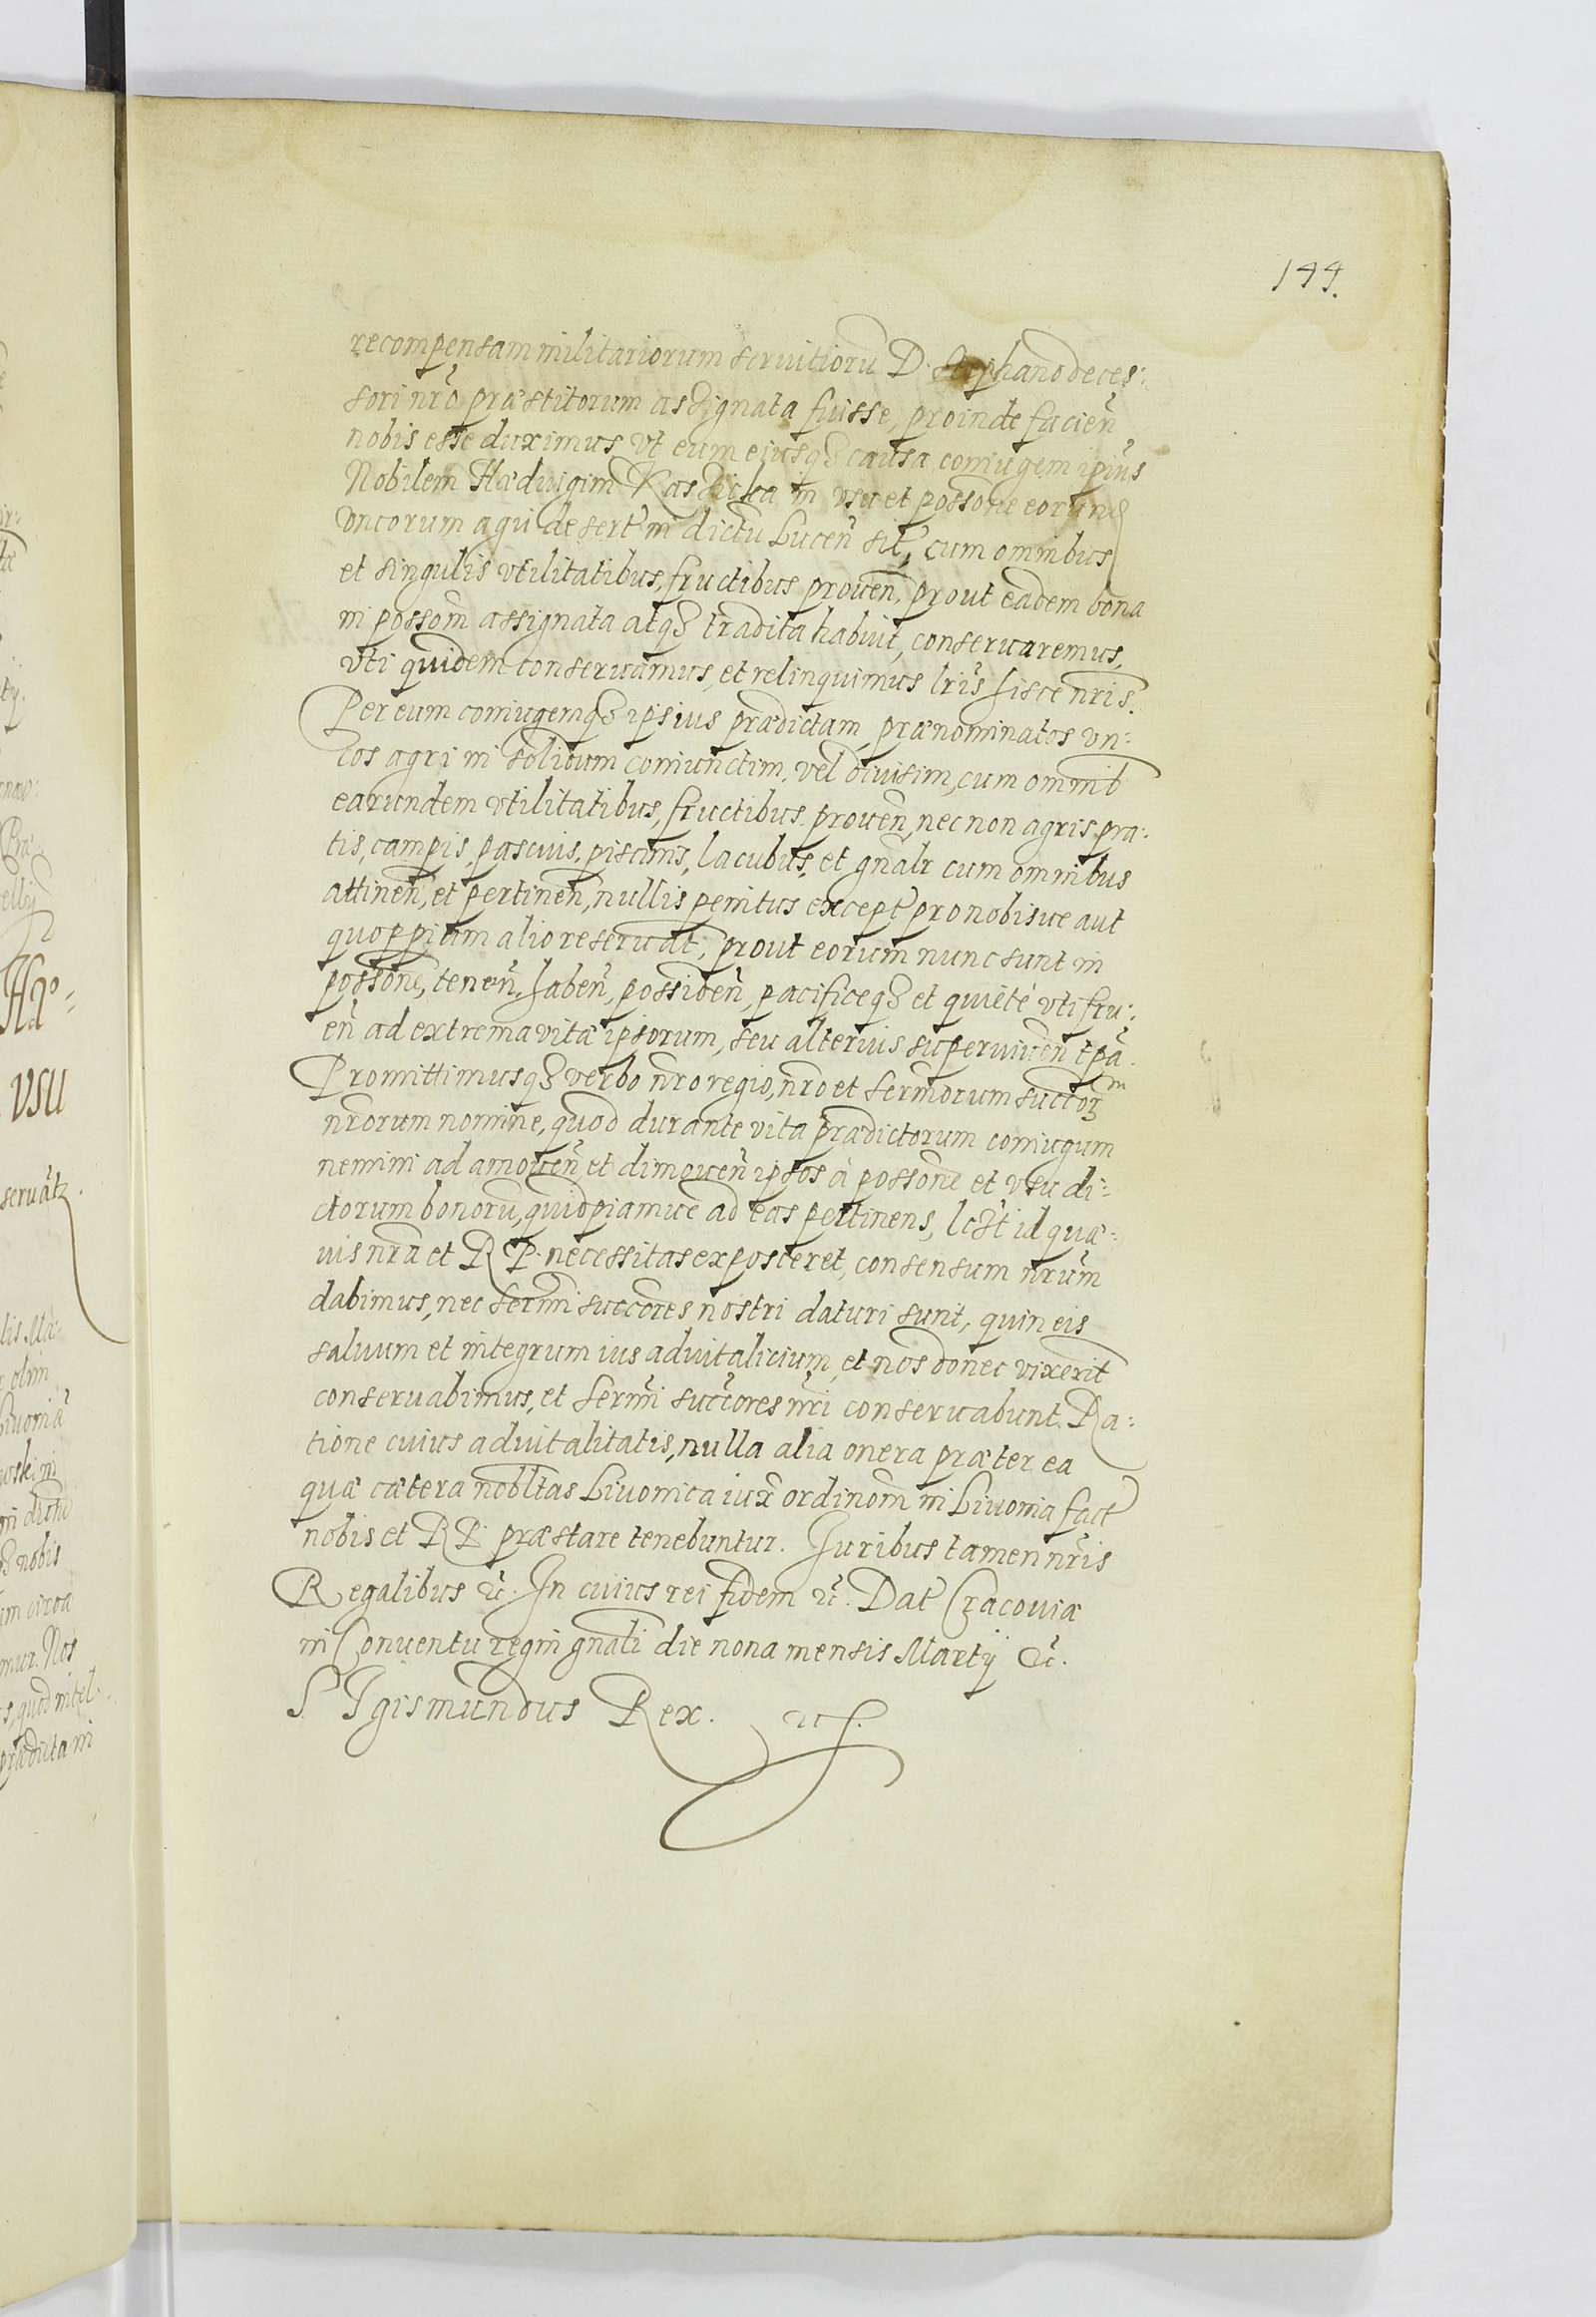 144.
recompensam militariorum seruitioru D. Stephano deces:
sori nrō præstitorum assignata fuisse, proinde facien̄
nobis esse duximus, vt eum eiusqꝫ causa coniugem ipius
Nobilem Hæduigim in vsu et possone eorund
vncorum agri desert in dictu Lucen̄ sit, cum omnibus
et singulis vtilitatibus, fructibus prouen, prout eadem bona
in possom assignata atqꝫ tradita habuit, conseruaremus,
vti quidem conseruamus, et relinquimus lris hisce nris.
Per eum coniugemqꝫ ipsius prædictam, prænominatos vn:
cos agri in solidum coniunctim, vel diuisim, cum omnib
earundem vtilitatibus, fructibus prouen, nec non agris pra:
tis, campis, pascuis, piscinis, lacubus, et gnalr cum omnibus
attinen, et pertinen, nullis penitus except pro nobis ue aut
quoppiam alio reseruat; prout eorum nunc sunt in
possone, tenen, haben, possiden, pacificeqꝫ et quietè vti fru:
en ad extrema vitæ ipsorum, seu alterius superuiuen tpa.
Promittimusqꝫ verbo nro regio, nro et sermorum succorꝫ m
nrorum nomine, quod durante vita prædictorum coniugum
nemini ad amouen et dimouen ipsos à possone et vsu di:
ctorum bonoru, quidpiamue ad eas pertinens, lcꝫt id quæ:
uis nra et R P. necessitas exposceret, consensum nrum
dabimus, nec sermi succores nostri daturi sunt, quin eis
saluum et integrum ius aduitalicium, et nos donec vixerit
conseruabimus, et sermi succores nri conseruabunt. Ra:
tione cuius aduitalitatis, nulla alia onera præter ea
quæ cætera nobltas Liuonica iux ordinom in Liuonia fact
nobis et R P. præstare tenebuntur. Juribus tamen nris
Regalibus &c. In cuius rei fidem &c. Dat Cracouiæ
in Conuentu regni gnali die nona mensis Martij &c.
SIgismundus Rex.
Hæ:
vsu
seruatꝫ.
tis Ma:
olim
Liuonia
in dictu
nobis
im circa
mur. Nos
s, quod intel:
prædicta in